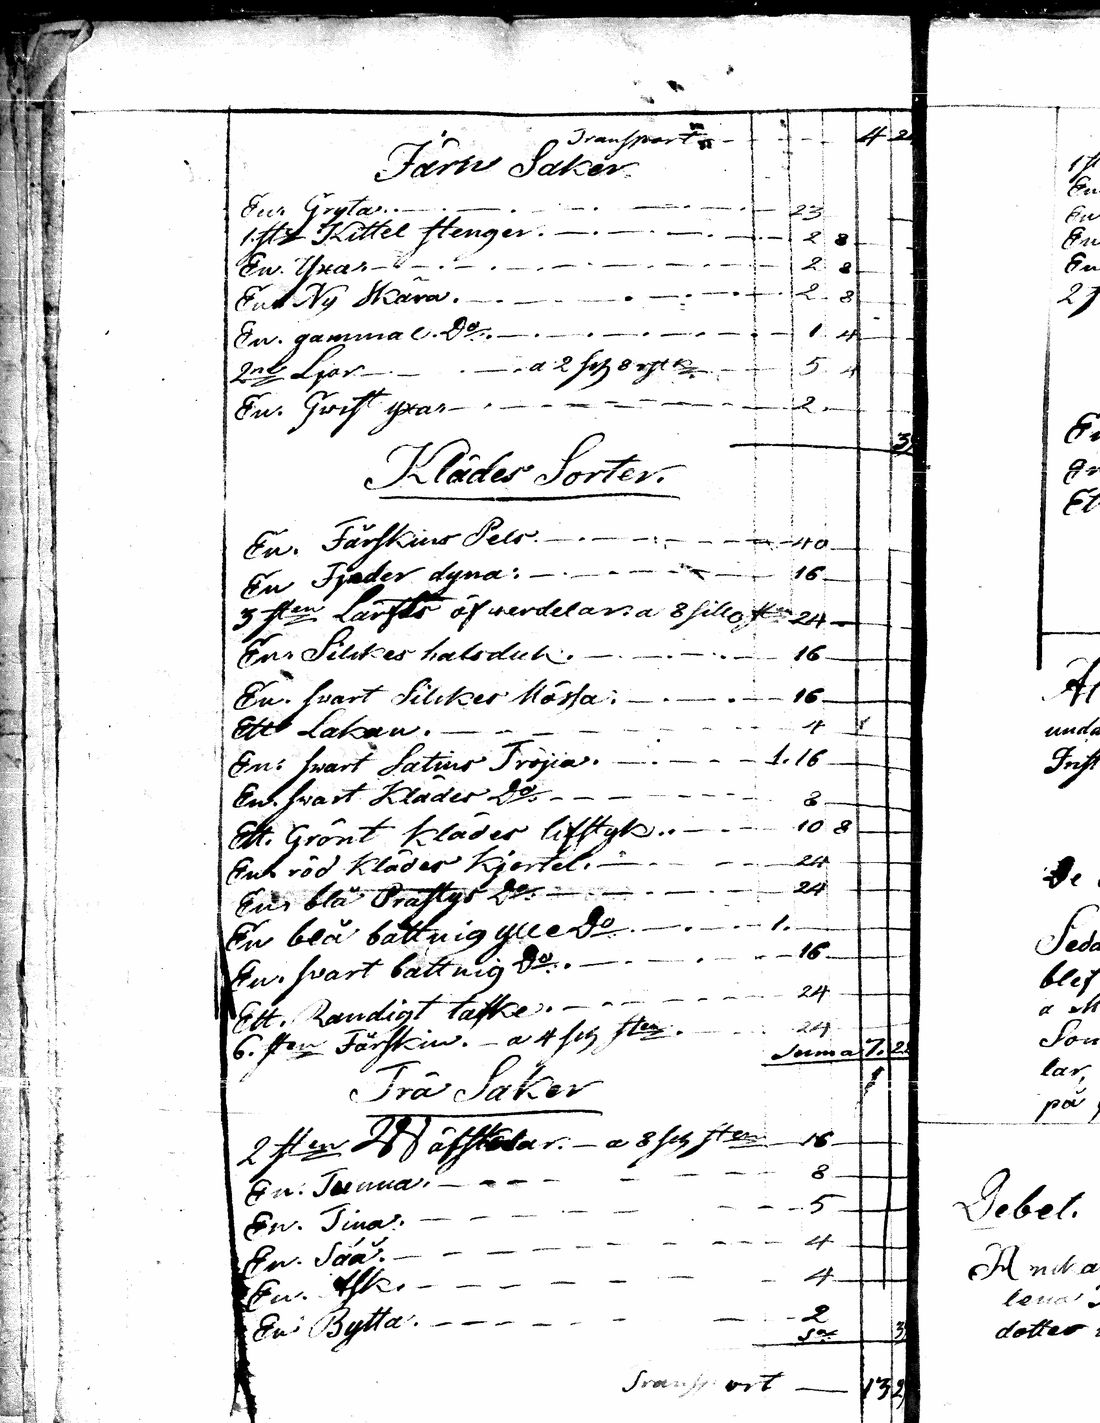 Transport 4 2
Järn Saker
En. Gryta 23
1. st Kittel stenger. 2 8
En. Yxa 2 8
En Ny Skära. 2 8
En. gammal Do. 1 4
2ne Ljor a 2 8 5 4
En. yxa 2
3
Klädes Sorter.
En. Fårskins Pels 40
En Fjeder dyna: 16
3 sten Lärfts öfwerdelar a 8 sten 24
En Silckes halsduk. 16
En. swart Silckes Mössa: 16
Ett Lakan. 4
En: swart Satins Tröjia. 1. 16
En. swart Klädes Do. 8
Ett. Grönt klädes lifstyk.. 10 8
En röd klädes Kjortel. 24
En. blå Do. 24
En blå battnig ylle Do 1.
En. swart battnig Do. 16
Ett. Randigt 24
6. sten Fårskin. a 4 sk sten. 24
Suma 7. 2
Trä Saker
2 sten Wäfstolar. a 8 sk sten 16
En: Tunna. 8
En. Tina. 5
En. Såå. 4
En. Ask. 4
En Bytta. 2
Sa 3
Transport 13 2
En
En
En
En
2
En
Et
unda
De
Seda
blef
a
Son
lar,
på
Debet.
lena
dotter